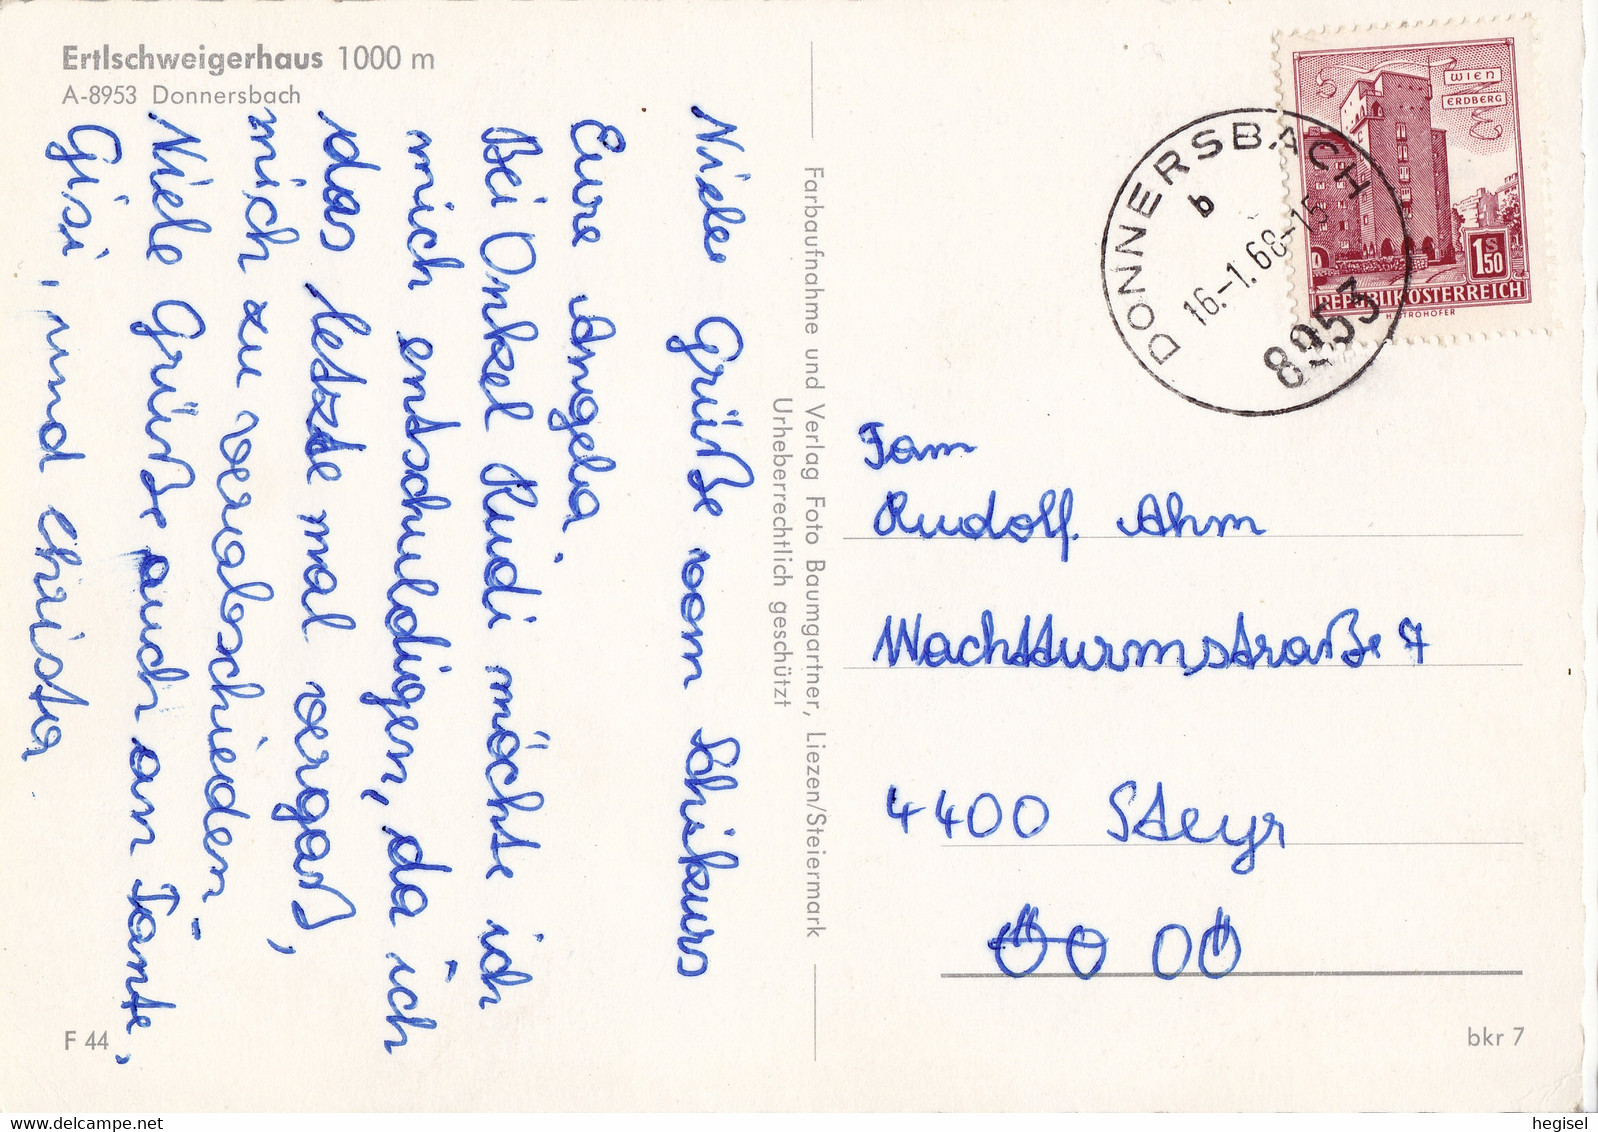 Ertlschweigerhaus 1000 m
A-8953 Donnersbach
Viele Grüße vom Schikurs
Eure Angela.
Bei Onkel Rudi möchte ich
mich entschuldigen, da ich
das letzte mal vergaß,
mich zu verabschieden.
Viele Grüße auch an Tante,
Gisi, und Christa
F 44
Farbaufnahme und Verlag Foto Baumgartner, Liezen/Steiermark
Urheberrechtlich geschützt
WIEN
ERDBERG
1 S 50
REPUBLIK ÖSTERREICH
H. STROHOFER
DONNERSBACH
b
16.-1.68-15
8953
Fam
Rudolf Ahm
Wachtturmstraße 7
4400 Steyr
ÖO OÖ
bkr 7
hegisel